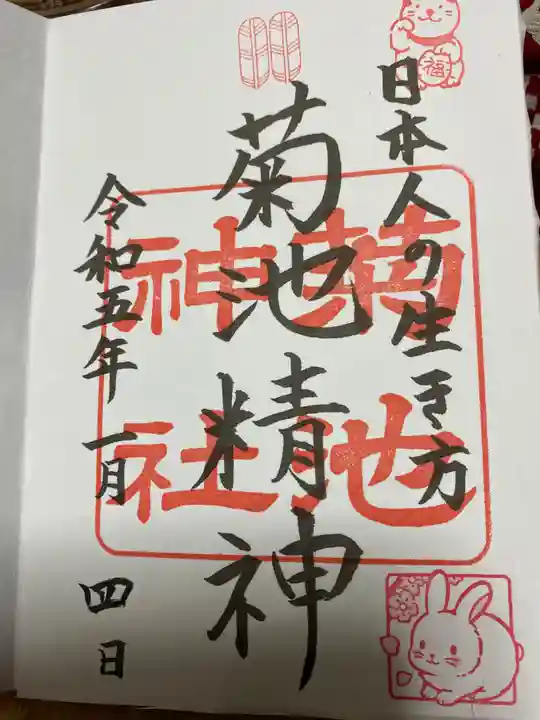 日本人の生き方
菊池精神
令和五年 一月 四日
菊池
神社
福